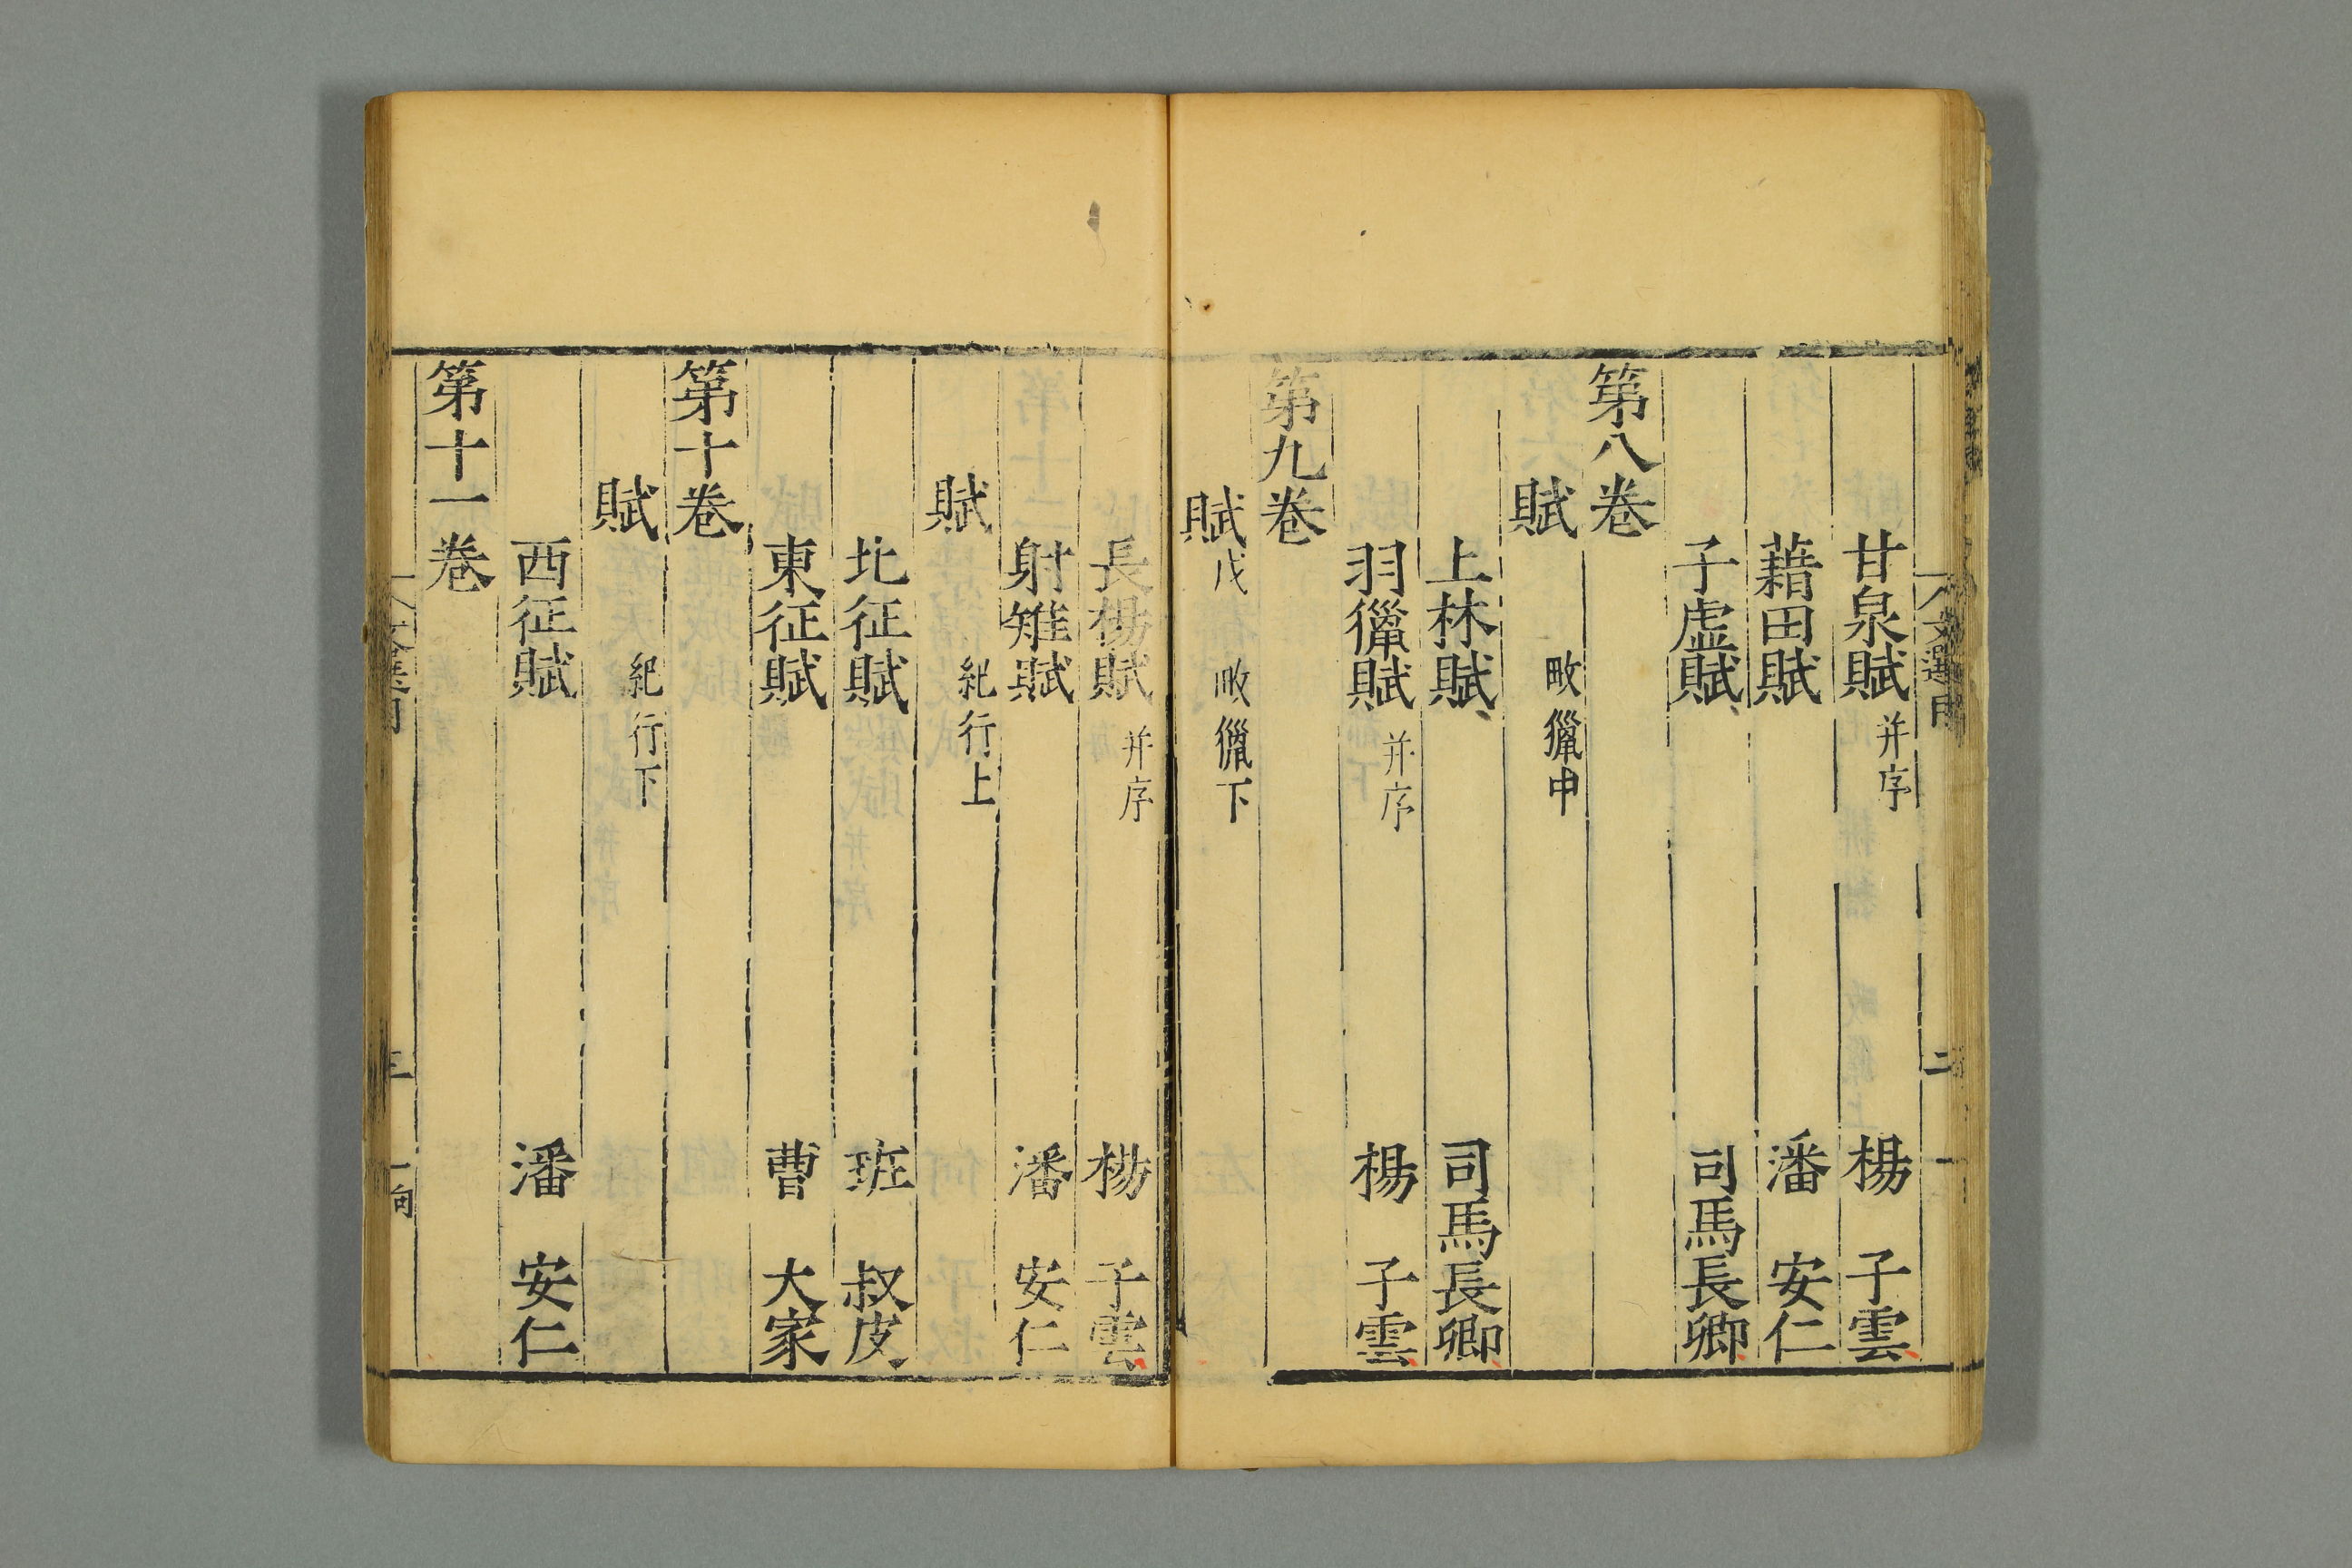 甘泉賦 并序 楊 子雲
藉田賦 潘 安仁
子虛賦 司馬長卿
第八卷
賦 畋獵中
上林賦 司馬長卿
羽獵賦 并序 楊 子雲
第九卷
賦戊 畋獵下
長楊賦 并序 楊 子雲
射雉賦 潘 安仁
賦 紀行上
北征賦 班 叔皮
東征賦 曹 大家
第十卷
賦 紀行下
西征賦 潘 安仁
第十一卷